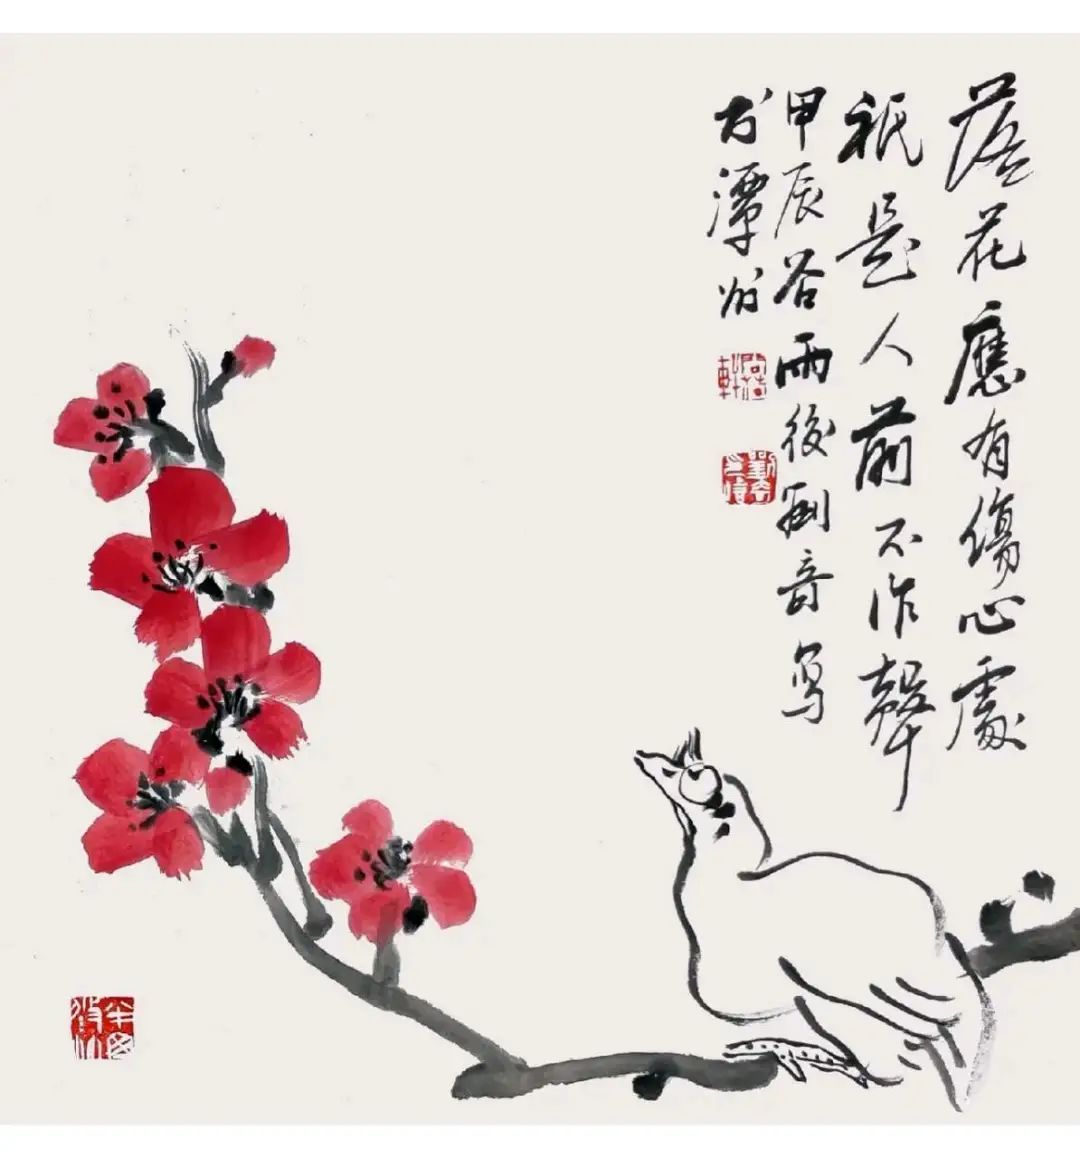 落花應有傷心處
祇是人前不作聲
甲辰谷雨後劉音寫
於潭州